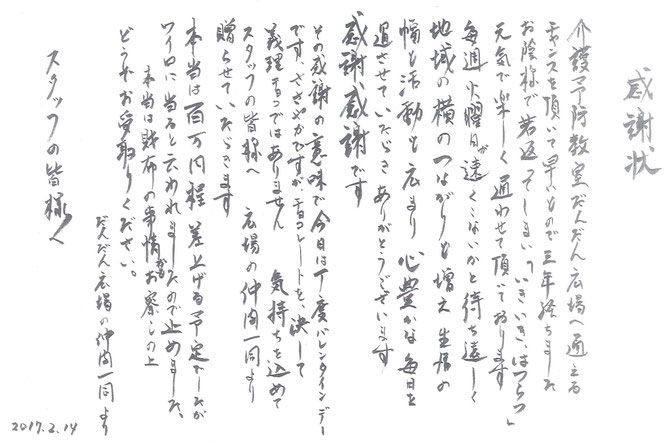 感謝状
介護予防教室だんだん広場へ通える
チャンスを頂いて早いもので三年経ちました
お陰様で若返ってしまい「いきいき、はつらつ」
元気で楽しく通わせて頂いております
毎週火曜日が遠くこないかと待ち遠しく
地域の横のつながりも増え生活の
幅も活動も広まり心豊かな毎日を
過させていただきありがとうございます
感謝、感謝です
その感謝の意味で今日は丁度バレンタインデー
です、ささやかですがチョコレートを、決して
義理チョコではありません 気持ちを込めて
スタッフの皆様へ 広場の仲間一同より
贈らせていただきます
本当は百万円程差上げる予定でしたが
ワイロに当ると云われましたので止めました、
本当は財布の事情がお察しの上
どうかお受取りください。
だんだん広場の仲間一同より
スタッフの皆様へ
2017.2.14